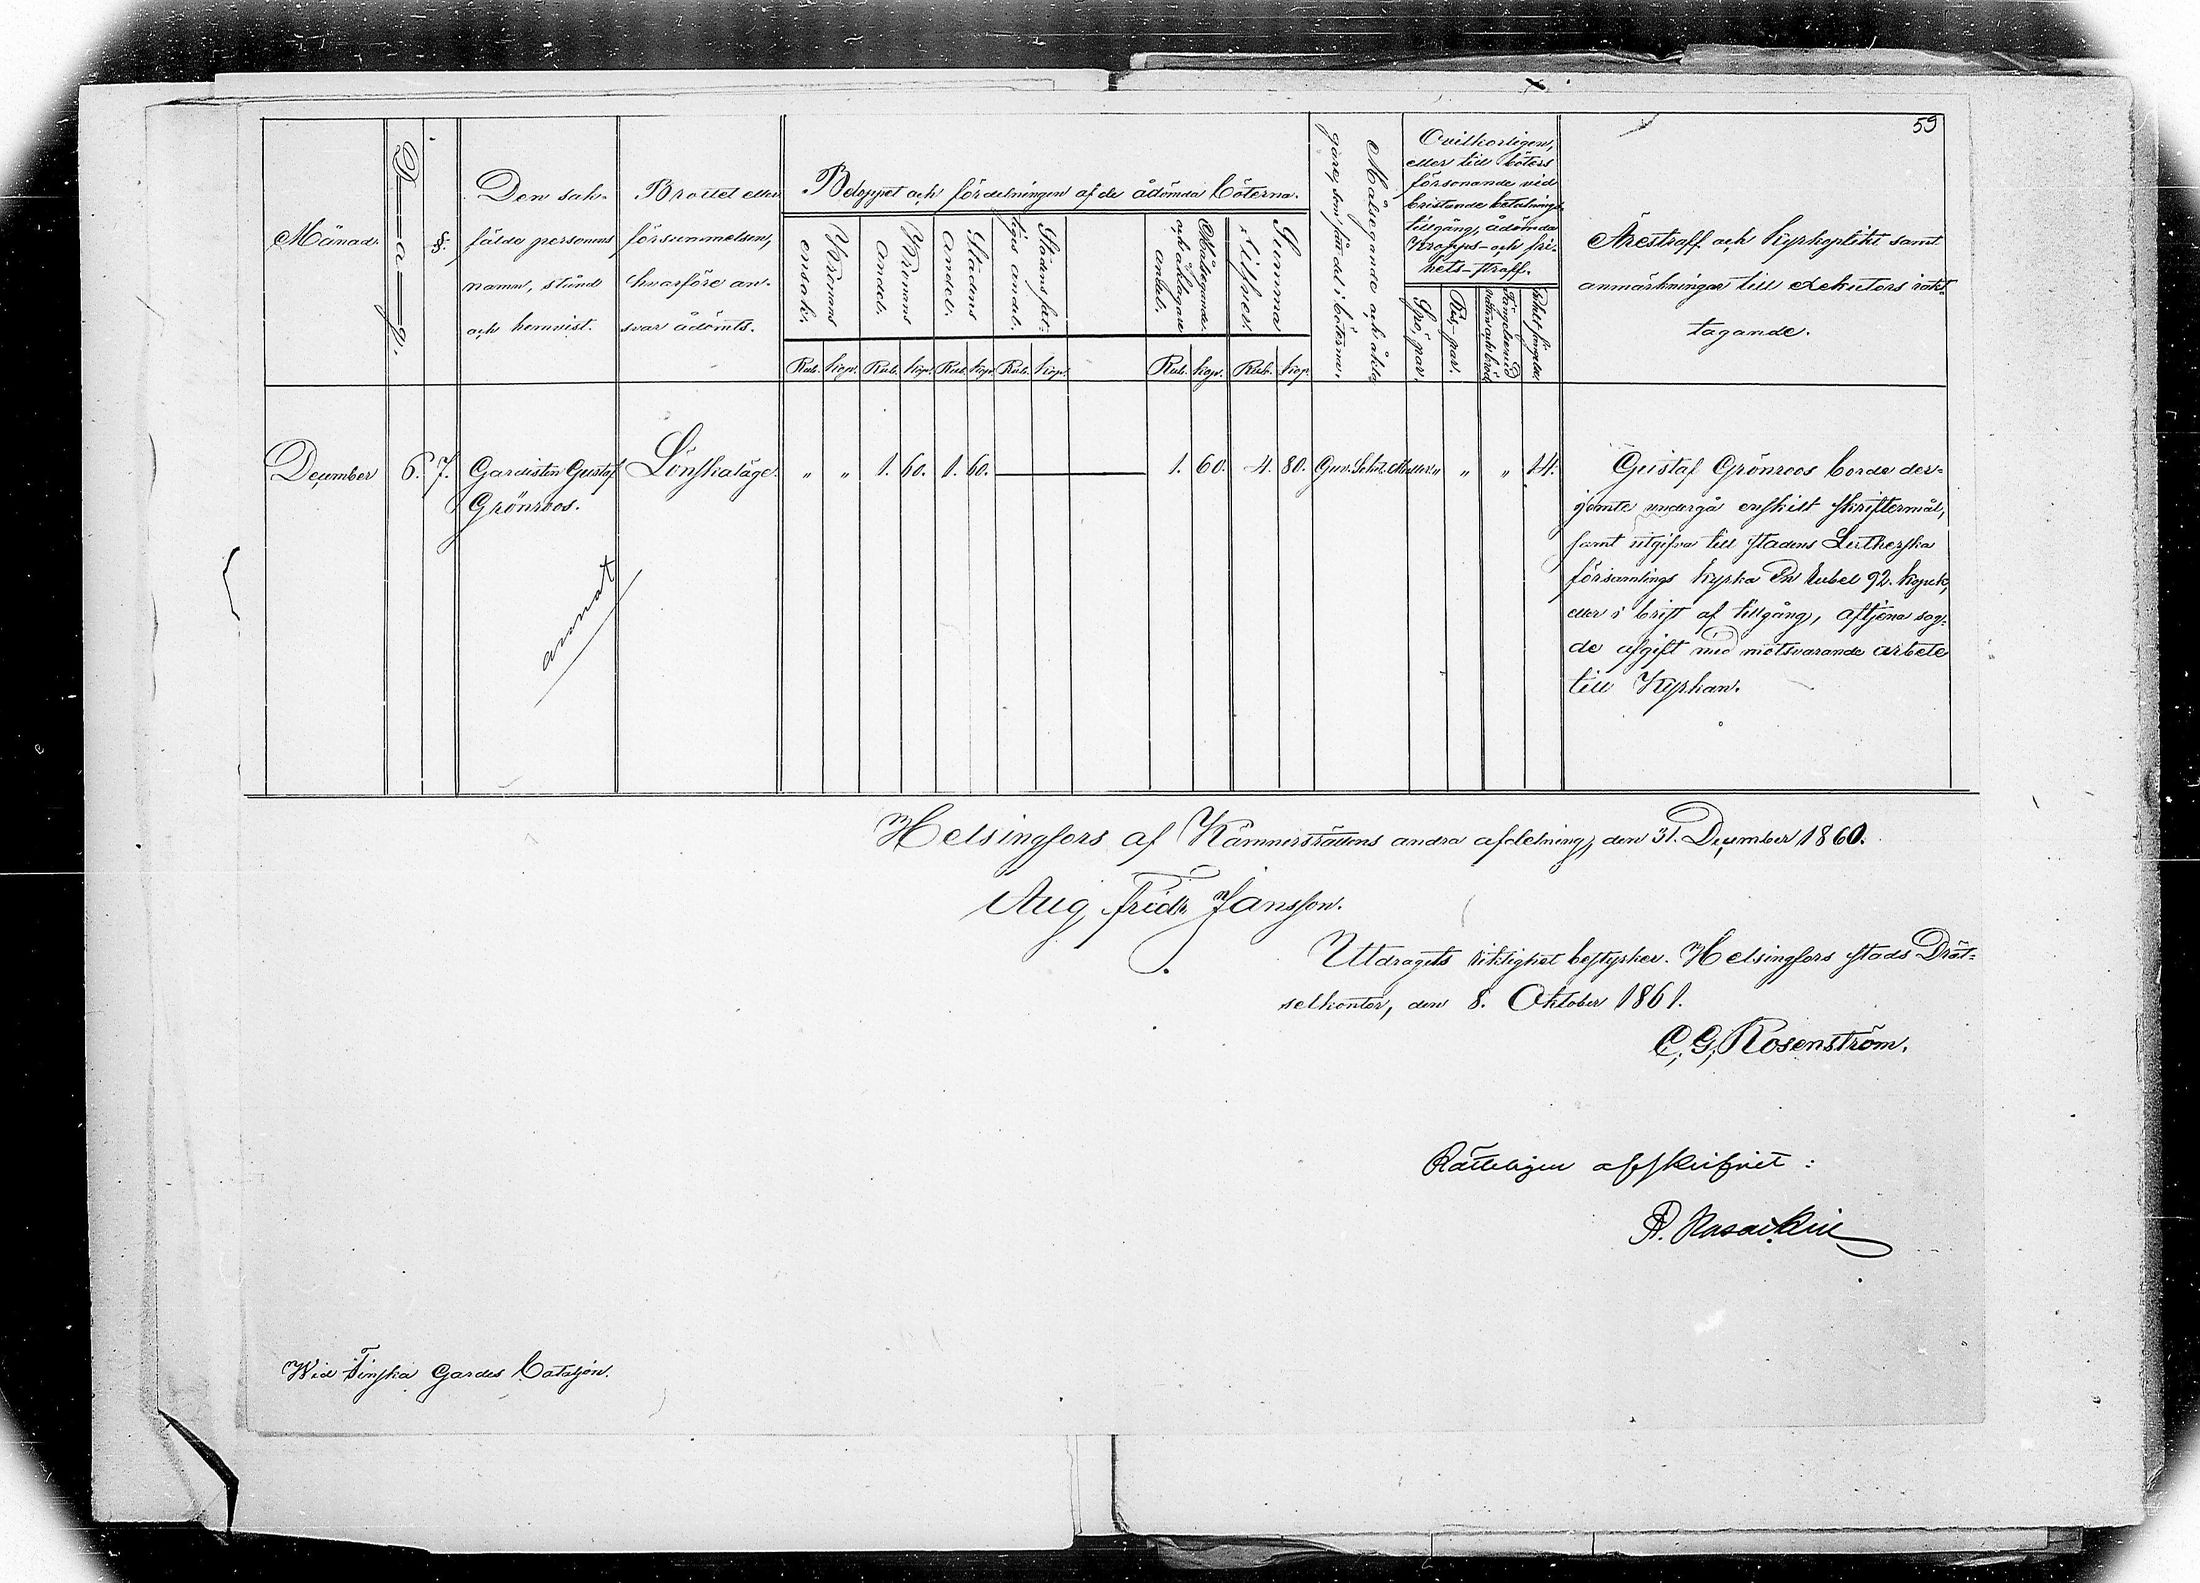 59
Månad.
Dag.
§.
Den sak-
fälda personens
namn, stånd
och hemvist.
Brottet eller
försummelsen,
hvarföre an-
svar ådömts.
Beloppet och fördelningen af de ådömda böterna.
Kronans
ensak.
Kronans
andel.
Stadens
andel.
Stadens fat-
tigas andel.
Målsegande
och åklagare
andel.
Summa
Silfver.
Rub. Kop. Rub. Kop. Rub. Kop. Rub. Kop. Rub. Kop. Rub. Kop.
Målsegande och åkla-
gare, som får del i böterna.
Ovilkorligen,
eller till böters
försonande vid
bristande betalnings-
tillgång, ådömda
Kropps- och fri-
hets-straff.
Spö, par.
Ris-par.
Fängelse vid
vatten och bröd
Ärestraff och Kyrkoplikt samt
anmärkningar till exekutors iakt-
tagande.
December 6. 7. Gardisten Gustaf Lönskaläge. „ „ 1. 60. 1. 60. 1. 60. 4. 80. „ „ „ 14.
Grönroos.
Gustaf Grönroos borde der-
jemte undergå enskilt skriftermål,
samt utgifva till stadens Lutherska
församlings kyrka En rubel 92. kopek,
eller i brist af tillgång, aftjena sag-
de afgift med motsvarande arbete
till Kyrkan.
Helsingfors af Kämnersrättens andra afdelning, den 31. December 1860.
Aug. Fridr. Jansson.
Utdragets riktighet bestyrker. Helsingfors stads Drät-
selkontor, den 8. Oktober 1861.
C. G. Rosenström.
Rätteligen afskrifvet:
Wid Finska Gardes Bataljon.